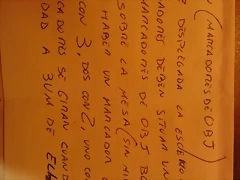 (MARCADORES DE OBJ
E DESPLEGADA LA ESCENO
ADORES DEBEN SITUAR UN
MARCADORES DE OBJ BO
SOBRE LA MESA (SIN MI
HABER UN MARCADOR
CON 3, DOS CON 2, UNO CO
CADORES SE GIRAN CUAND
DAD A 3UM DE ELL